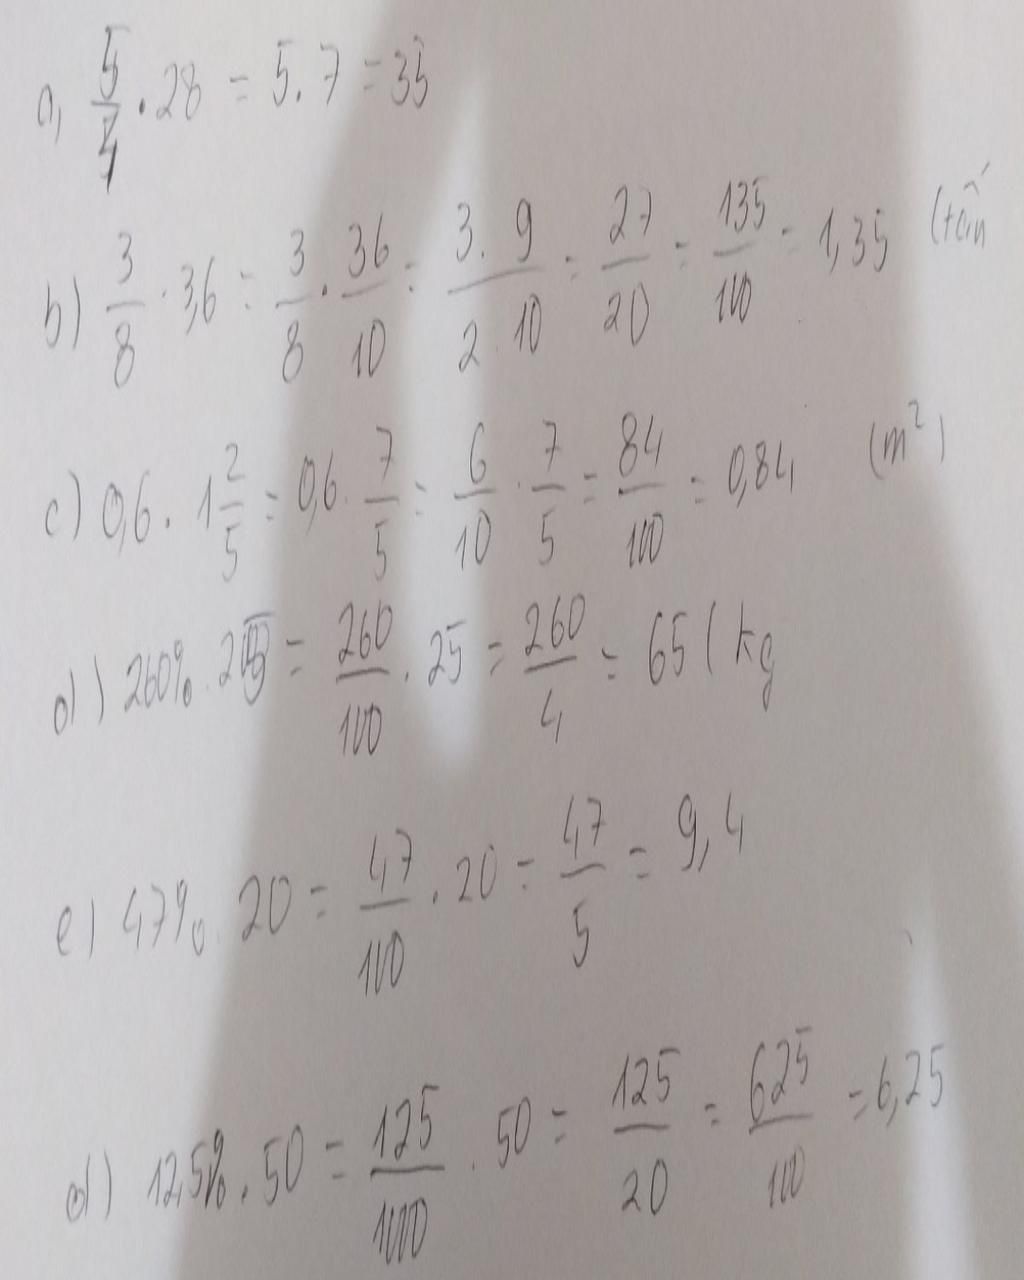 a, 5/4 . 28 = 5.7 = 35
b) 3/8 . 3,6 = 3/8 . 36/10 = 3.9/2.10 = 27/20 = 135/100 = 1,35 (tấn
c) 0,6 . 1 2/5 = 0,6 . 7/5 = 6/10 . 7/5 = 84/100 = 0,84 (m²)
d) 260% . 25 = 260/100 . 25 = 260/4 = 65 (kg
e) 47% . 20 = 47/100 . 20 = 47/5 = 9,4
d) 12,5% . 50 = 125/1000 . 50 = 125/20 = 625/100 = 6,25